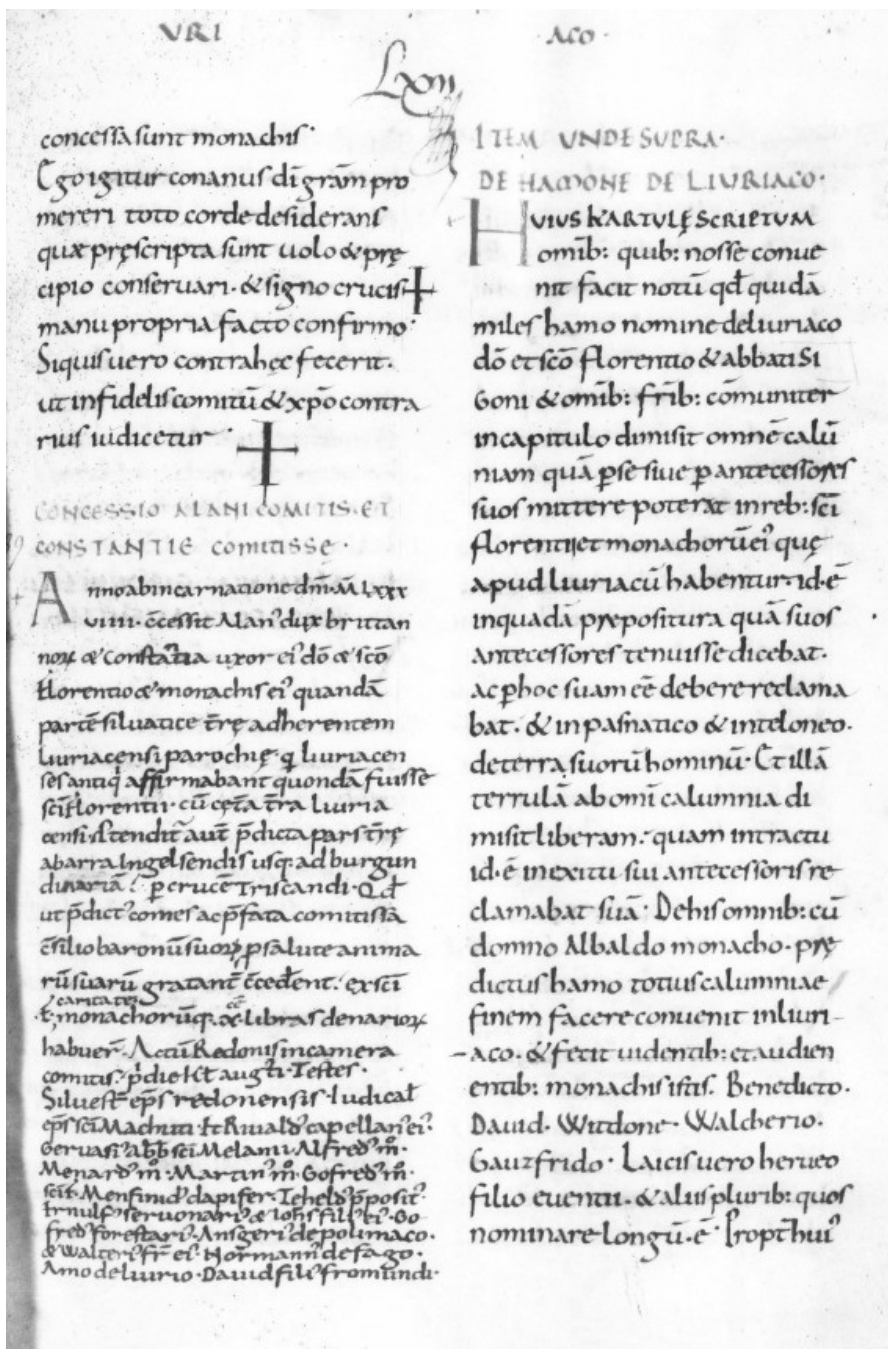 VRI ACO·
Lxvii
concessa sunt monachis·
Ego igitur conanus dī grām pro
mereri toto corde desiderans
quæ pręscripta sunt uolo & prę
cipio conseruari· & signo crucis +
manu propria facto confirmo·
Siquis uero contra hęc fecerit·
ut infidelis comitū & xp̄o contra
rius iudicetur·
CONCESSIO ALANI COMITIS· ET
CONSTANTIE COMITISSE·
Anno ab incarnatione dm̄i· M LXXX
VIIII· c̄cessit Alan' dux brittan
noꝝ & Constātia uxor ei' dō & scō
florentio & monachis ei' quandā
partē siluatice t̄rę adherentem
Liuriacensi parochię· q Liuriacen
ses antiq affirmabant quondā fuisse
scī florentii· cū cęt̄a t̄ra Liuria
censi· Ātendit' aut p̄dicta pars t̄rę
abarra Ingelsendis usq; ad burgun
p crucē Triscandi· Qd
ut p̄dict' comes ac p̄fata comitissa
c̄silio baronū suoꝝ p salute anima
rū suarū gratant̄ c̄cedent· ex scī
caritate
f· monachorūq; libras denarioꝝ
habuer̄· Actū Redonis in camera
comitis· p̄die kł augti· Testes·
Siluest̄ ep̄s redonensis· Iudicał
ep̄s scī Machuti· & Riuald' capellan' ei'·
Geruasi' abb̄ scī Melanii· Alfred' m̄·
Menard' m̄· Martin' m̄· Gofred' m̄·
Menfinid' dapifer· Teheld' p̄posit'·
& Ioh̄s fili' ei'· Go
fred' forestari'· Ansgeri' de polimaco·
& Walteri' fr̄ ei'· Normann' de fago·
Amo de liurio· Dauid fili' fromundi·
ITEM UNDE SUPRA·
DE HAMONE DE LIURIACO·
HUIUS KARTULĘ SCRIPTUM
omīb: quib: nosse conue
nit facit notū qd quidā
miles hamo nomine de liuriaco
dō et scō florentio & abbati Si
goni & omīb: fr̄ib: cōmuniter
in capitulo dimisit omnē calū
niam quā p se siue p antecessores
suos mittere poterat in reb: scī
florentii et monachorū ei' quę
apud liuriacū habentur· id·ē
in quadā prepositura quā suos
antecessores tenuisse dicebat·
ac p hoc suam eē debere reclama
bat· & in pasnatico & in teloneo·
de terra suorū hominū· Et illā
terrulā ab omi calumnia di
misit liberam· quam intractu
id·ē in exitu sui antecessoris re
clamabat suā· De his omnib: cū
domno Albaldo monacho· prę
dictus hamo totius calumniae
finem facere conuenit in liuri-
-aco· & fecit uidentib: et audien
entib: monachis istis. Benedicto·
Dauid· Witdone· Walcherio·
Gauzfrido· Laicis uero herueo
filio euentii· & aliis plurib: quos
nominare longū·ē· Propt̄ hui'